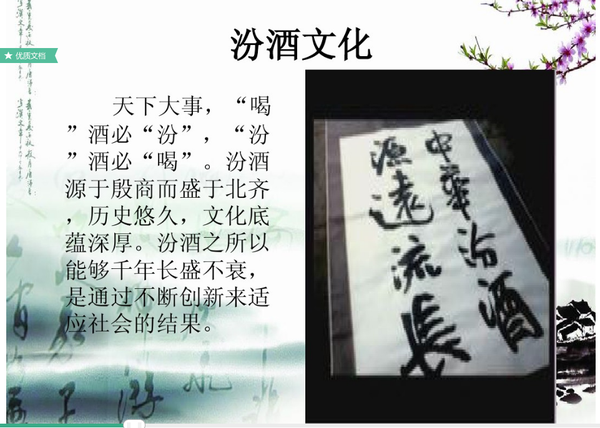 汾酒文化
优质文档
天下大事，“喝
”酒必“汾”，“汾
”酒必“喝”。汾酒
源于殷商而盛于北齐
，历史悠久，文化底
蕴深厚。汾酒之所以
能够千年长盛不衰，
是通过不断创新来适
应社会的结果。
中華汾酒
源遠流長